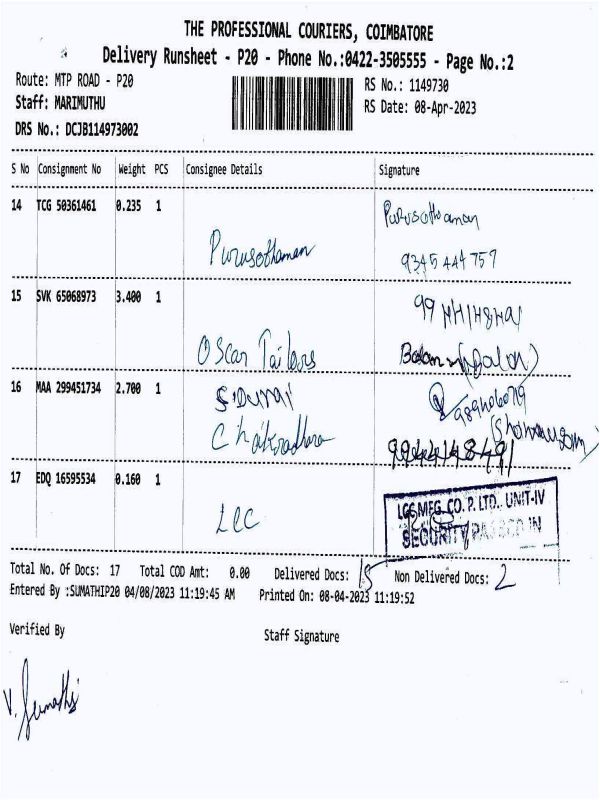 THE PROFESSIONAL COURIERS, COIMBATORE
Delivery Runsheet - P20 - Phone No.:0422-3505555 - Page No.:2
Route: MTP ROAD - P20
RS No.: 1149730
Staff: MARIMUTHU
RS Date: 08-Apr-2023
DRS No.: DCJB114973002
S No Consignment No Weight PCS Consignee Details Signature
14 TCG 50361461 0.235 1
Purusothaman
Purusothaman
9345 444 757
15 SVK 65068973 3.400 1
Oscar Tailors
16 MAA 299451734 2.700 1
S. Durai
9944148491
17 EDQ 16595534 0.160 1
LCC
LGS MFG. CO. P. LTD., UNIT-IV
SECURITY PASSED IN
Total No. Of Docs: 17 Total COD Amt: 0.00 Delivered Docs: 15 Non Delivered Docs: 2
Entered By :SUMATHIP20 04/08/2023 11:19:45 AM Printed On: 08-04-2023 11:19:52
Verified By Staff Signature
V. Sumathi